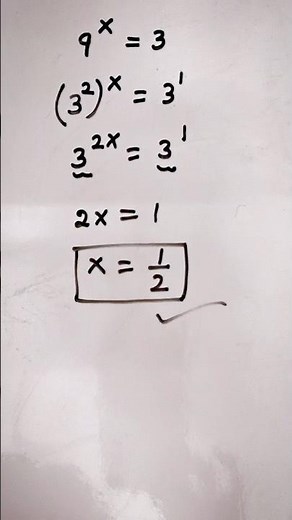 9^x = 3
(3^2)^x = 3^1
3^2x = 3^1
2x = 1
x = 1/2